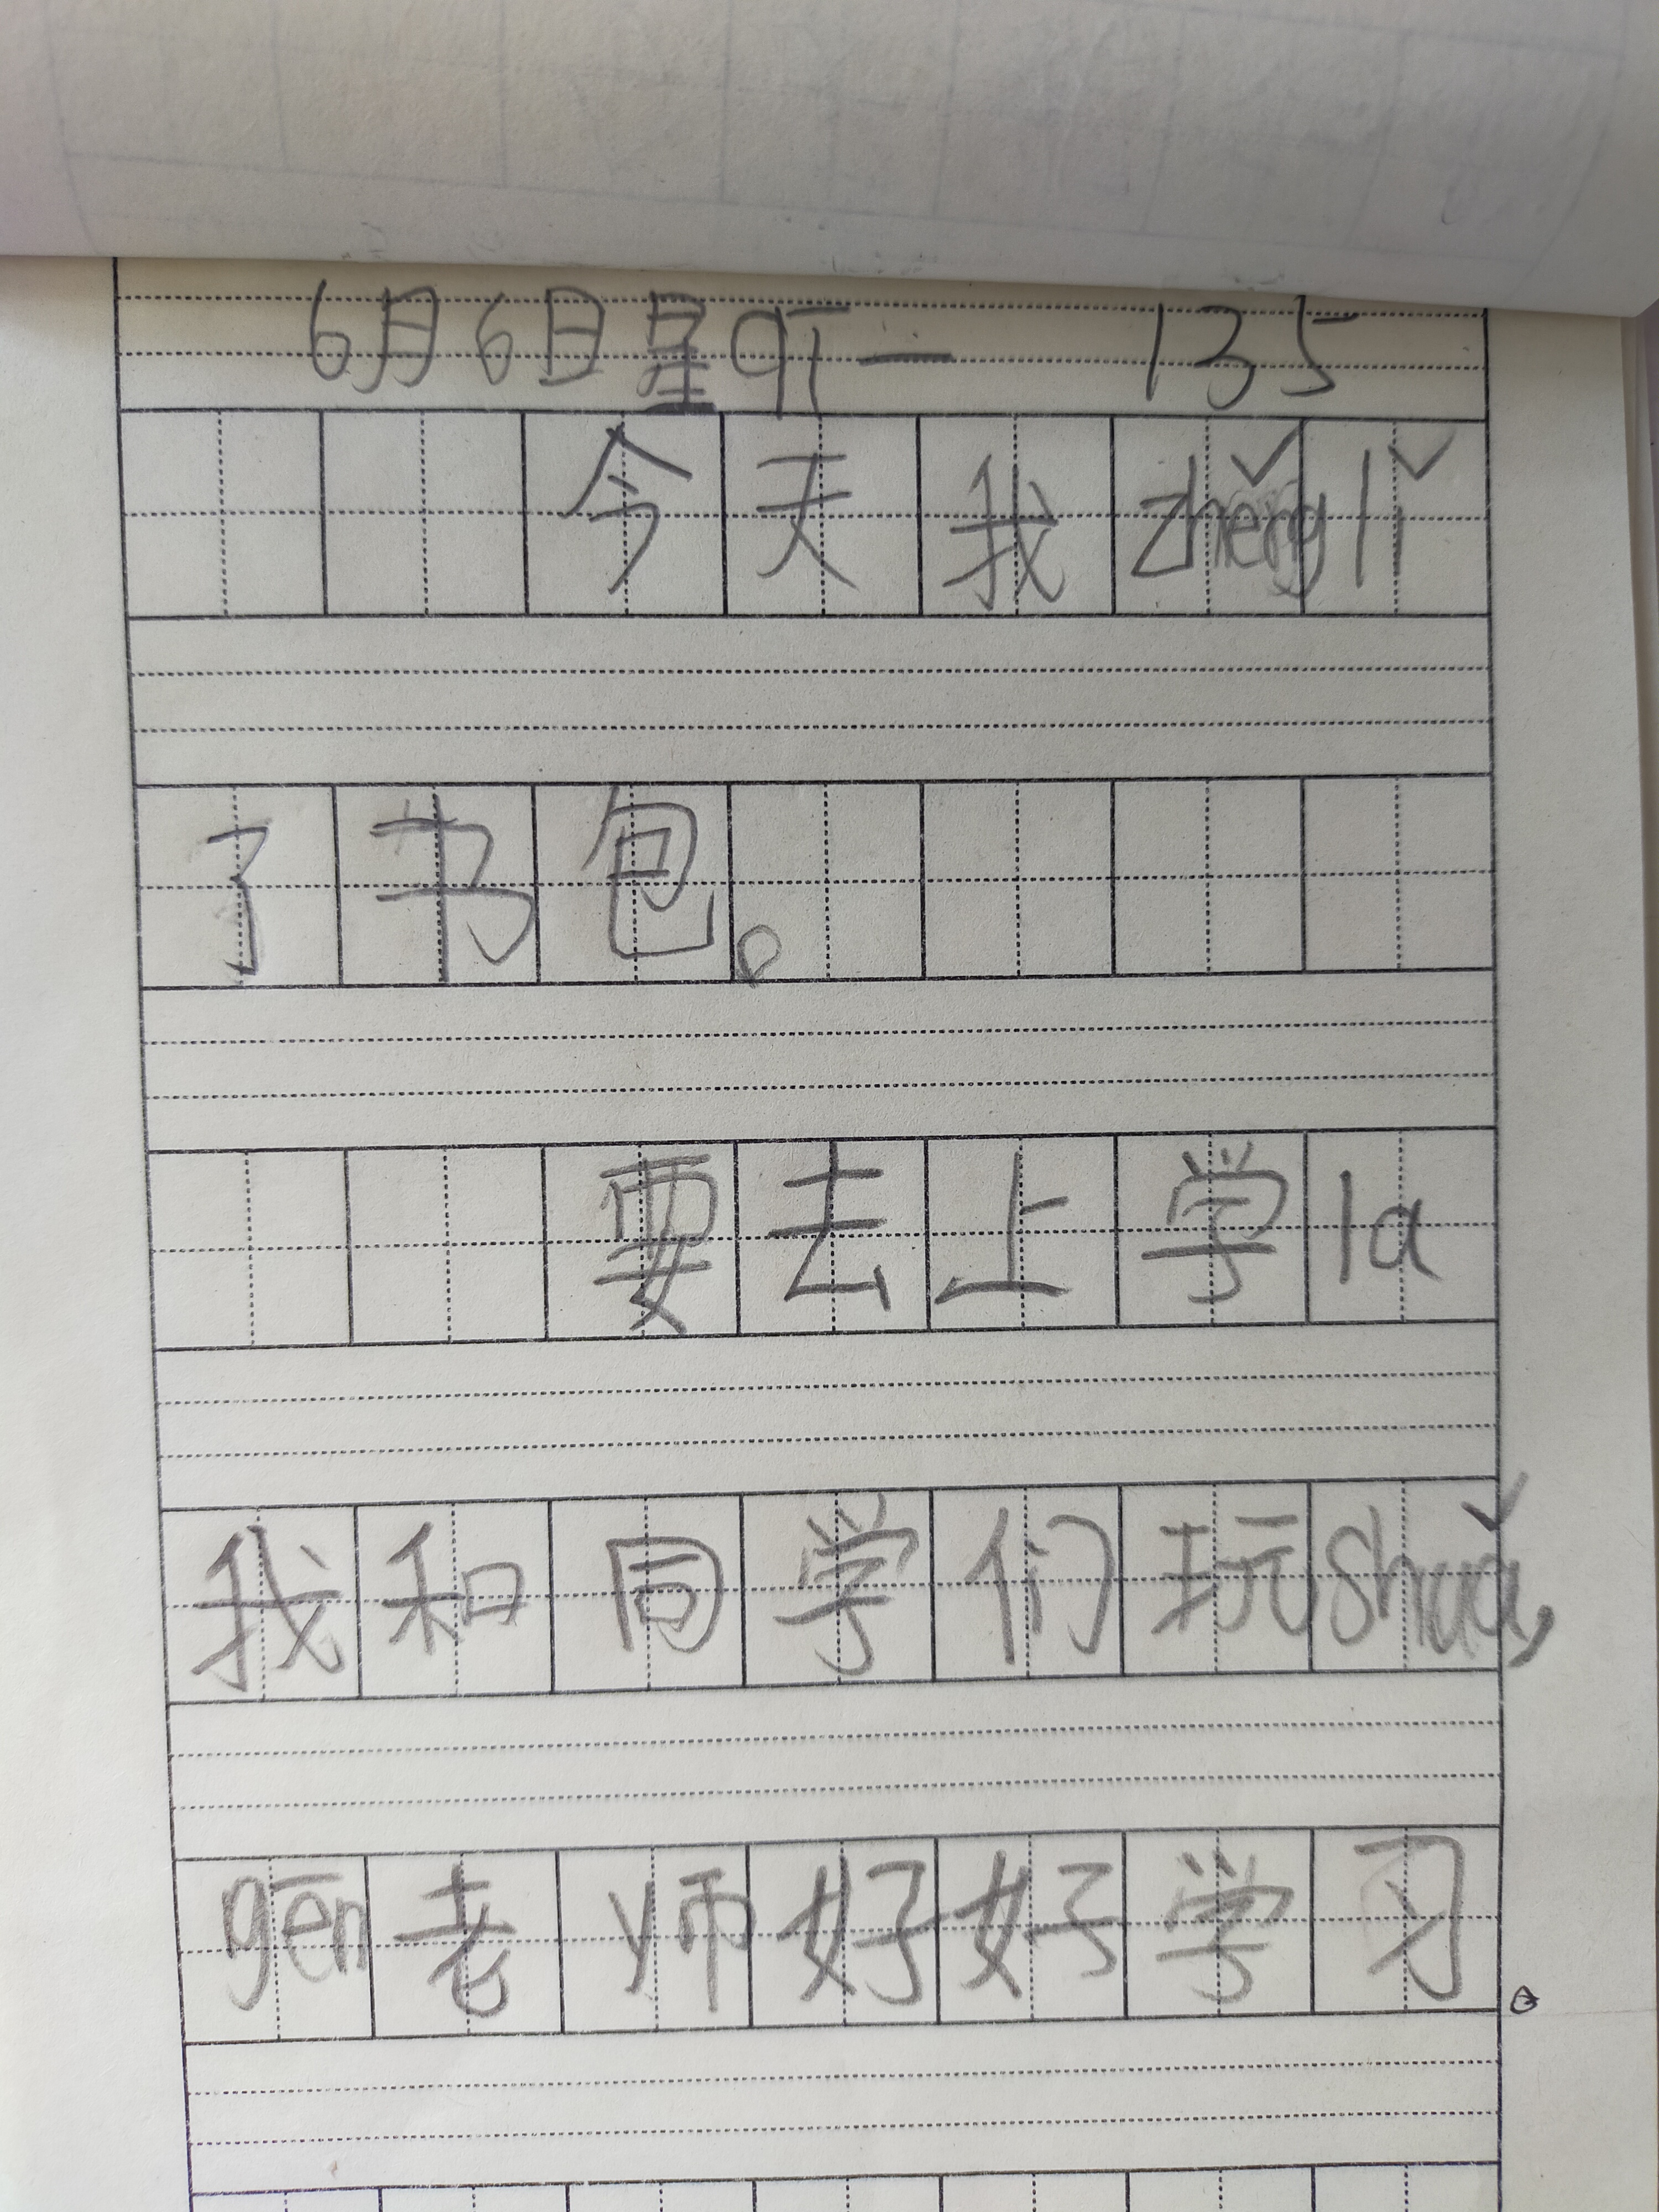 6月6日星qī一 135
今天我zhěnglǐ
了书包。
要去上学la
我和同学们玩shuǎ,
gēn老师好好学习。